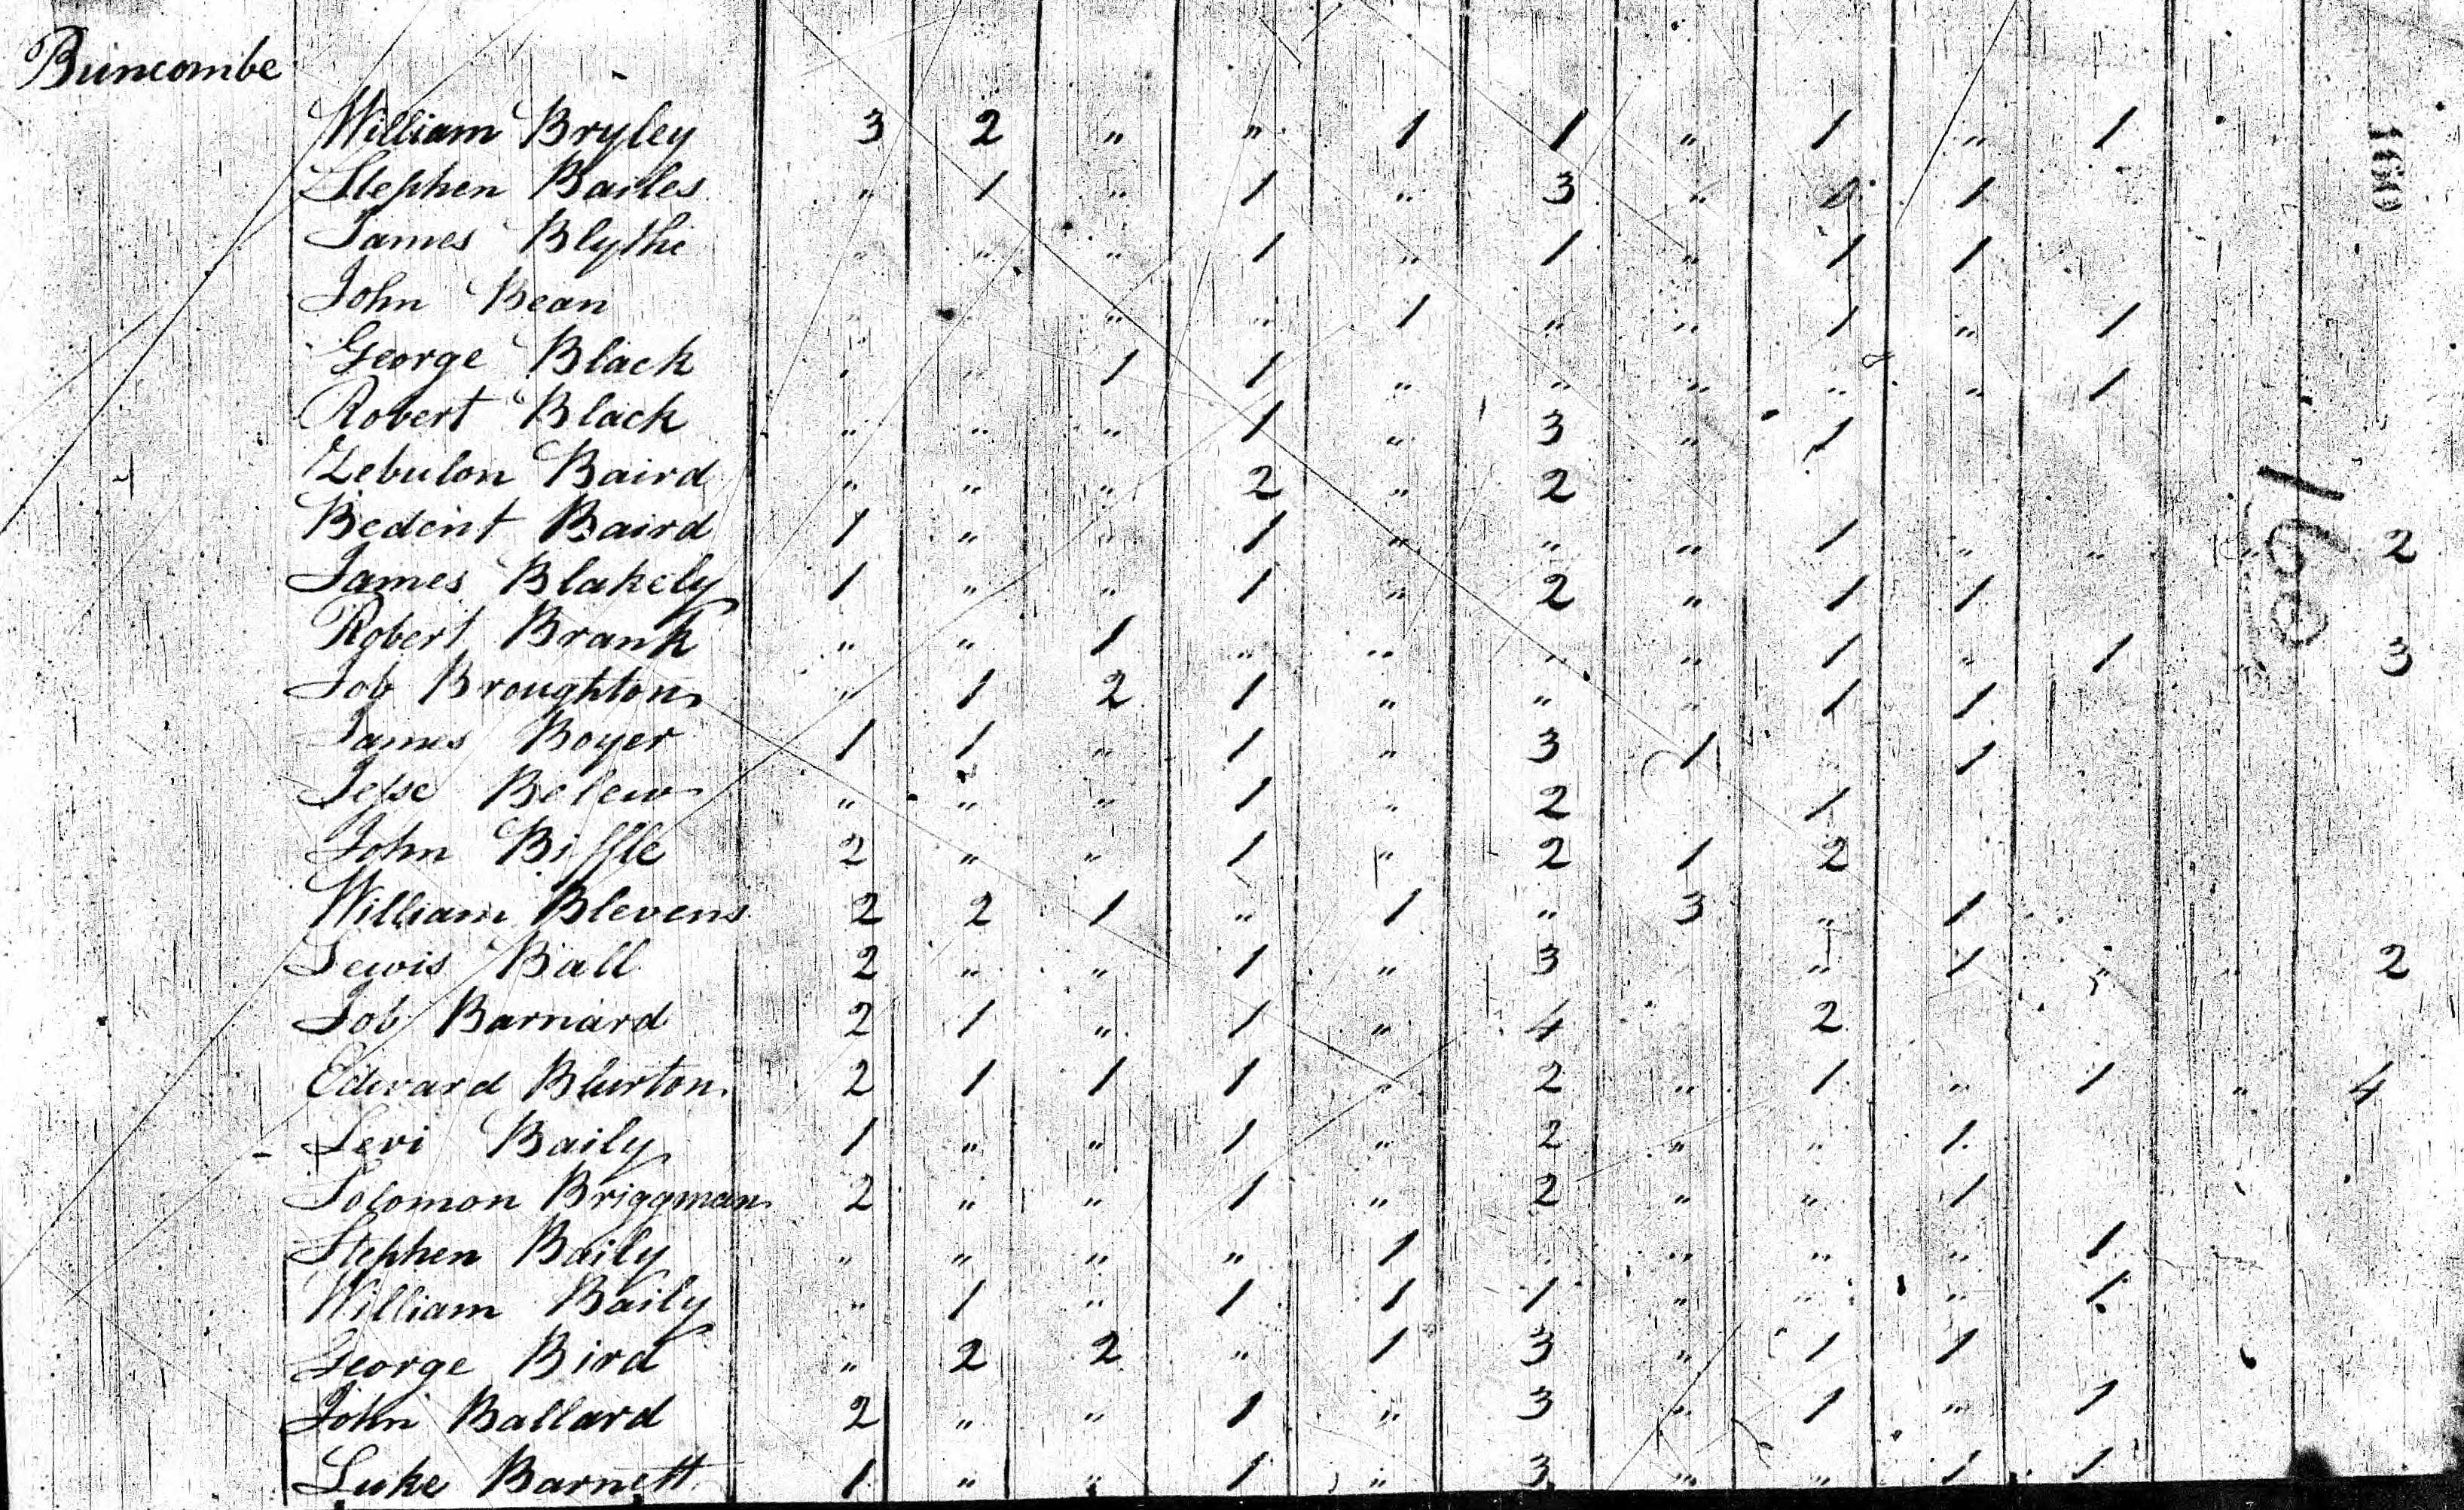 Buncombe
William Bryley 3 2 " " 1 1 " 1 " 1
Stephen Bailes " 1 " 1 " 3 " 1 1
James Blythe " " " 1 " 1 " 1 1
John Bean " " " 1 " " 1 " 1
George Black " " 1 1 " " " " " 1
Robert Black " " " 1 " 3 " 1
Zebulon Baird " " " 2 " 2
Bedent Baird 1 " " 1 " " " 1 " " " 2
James Blakely 1 " " 1 " 2 " 1 1
Robert Brank " " 1 " " " " 1 " 1 " 3
Job Broughton " 1 2 1 " " " 1 1
James Boyer 1 1 " 1 " 3 1 1
Jesse Belew " " " 1 " 2 1
John Biffle 2 " " 1 " 2 1 2
William Blevens 2 2 1 " 1 " 3 " 1
Lewis Ball 2 " " 1 " 3 " 1 " " 2
Job Barnard 2 1 " 1 " 4 2
Edward Blurton 2 1 1 1 " 2 " 1 " 1 " 4
Levi Baily 1 " " 1 " 2 " " 1
Solomon Briggman 2 " " 1 " 2 " " 1
Stephen Baily " " " " 1 " " " " 1
William Baily " 1 " 1 1 1 " " " 1
George Bird " 2 2 " 1 3 " 1 1
John Ballard 2 " " 1 " 3 " 1 " 1
Luke Barnett 1 " " 1 " 3 " " 1 1
160